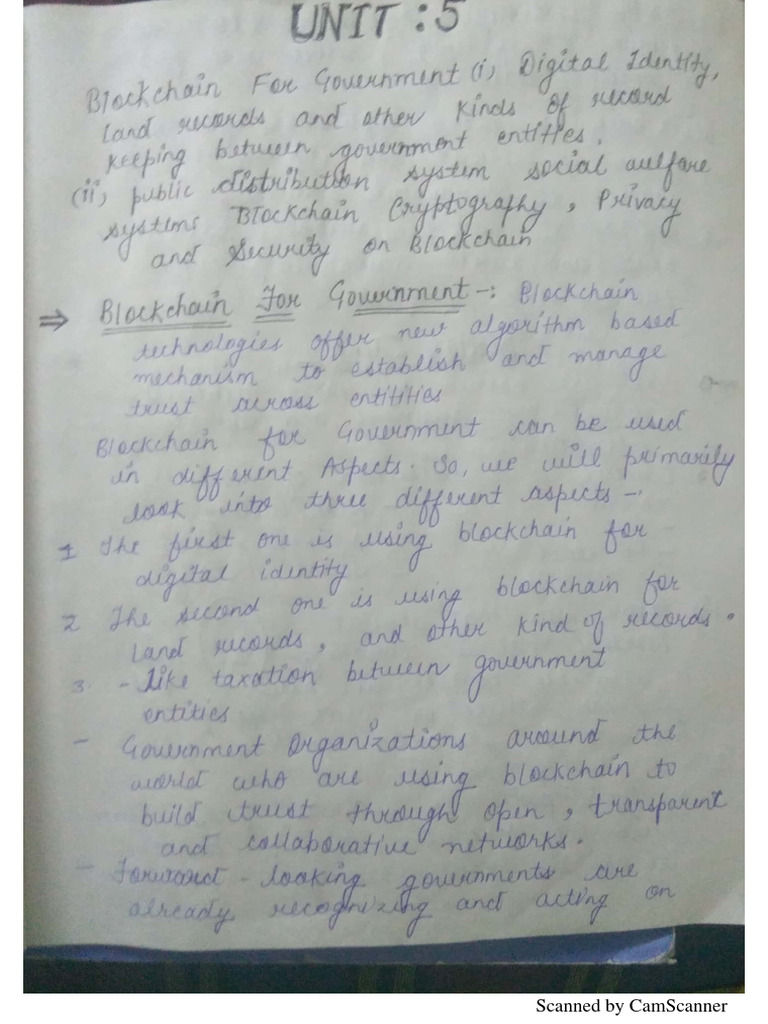 UNIT : 5
Blockchain For Government (i) Digital Identity,
land records and other kinds of record
keeping between government entities.
(ii) public distribution system social welfare
systems Blockchain Cryptography, Privacy
and Security on Blockchain
⇒ Blockchain For Government -: Blockchain
technologies offer new algorithm based
mechanism to establish and manage
trust across entitities
Blockchain for Government can be used
in different Aspects. So, we will primarily
look into three different aspects -:
1 The first one is using blockchain for
digital identity
2 The second one is using blockchain for
Land records, and other kind of records.
3. - Like taxation between government
entities
- Government Organizations around the
world who are using blockchain to
build trust through open, transparent
and collaborative networks.
- Forward - looking governments are
already recognizing and acting on
Scanned by CamScanner